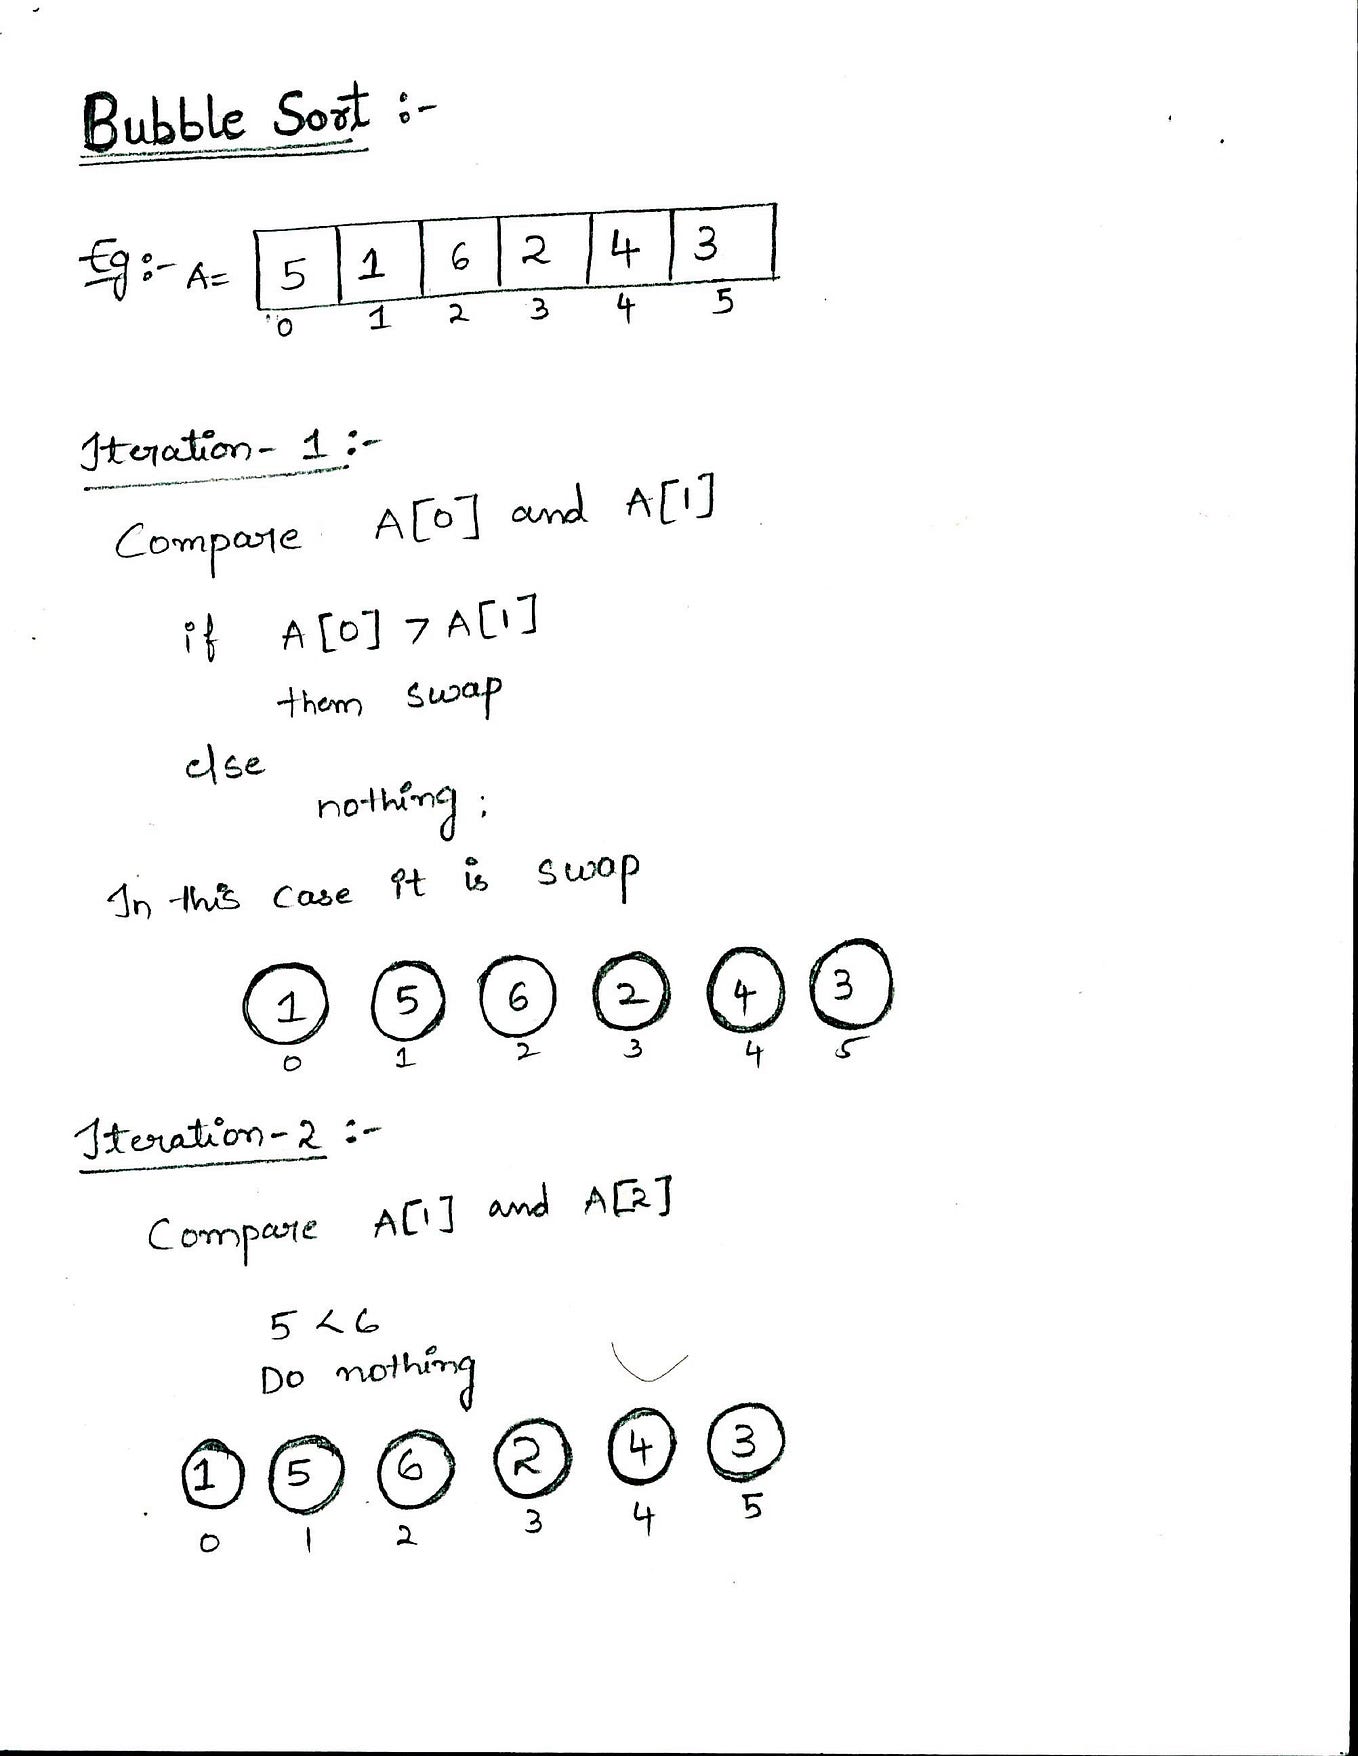 Bubble Sort :-
Eg :- A= 5 1 6 2 4 3
0 1 2 3 4 5
Iteration- 1 :-
Compare A[0] and A[1]
if A[0] > A[1]
them swap
else
nothing ;
In this case it is swap
1 5 6 2 4 3
0 1 2 3 4 5
Iteration-2 :-
Compare A[1] and A[2]
5 < 6
Do nothing
1 5 6 2 4 3
0 1 2 3 4 5